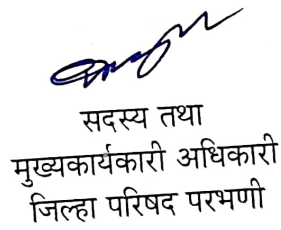 सदस्य तथा
मुख्यकार्यकारी अधिकारी
जिल्हा परिषद परभणी